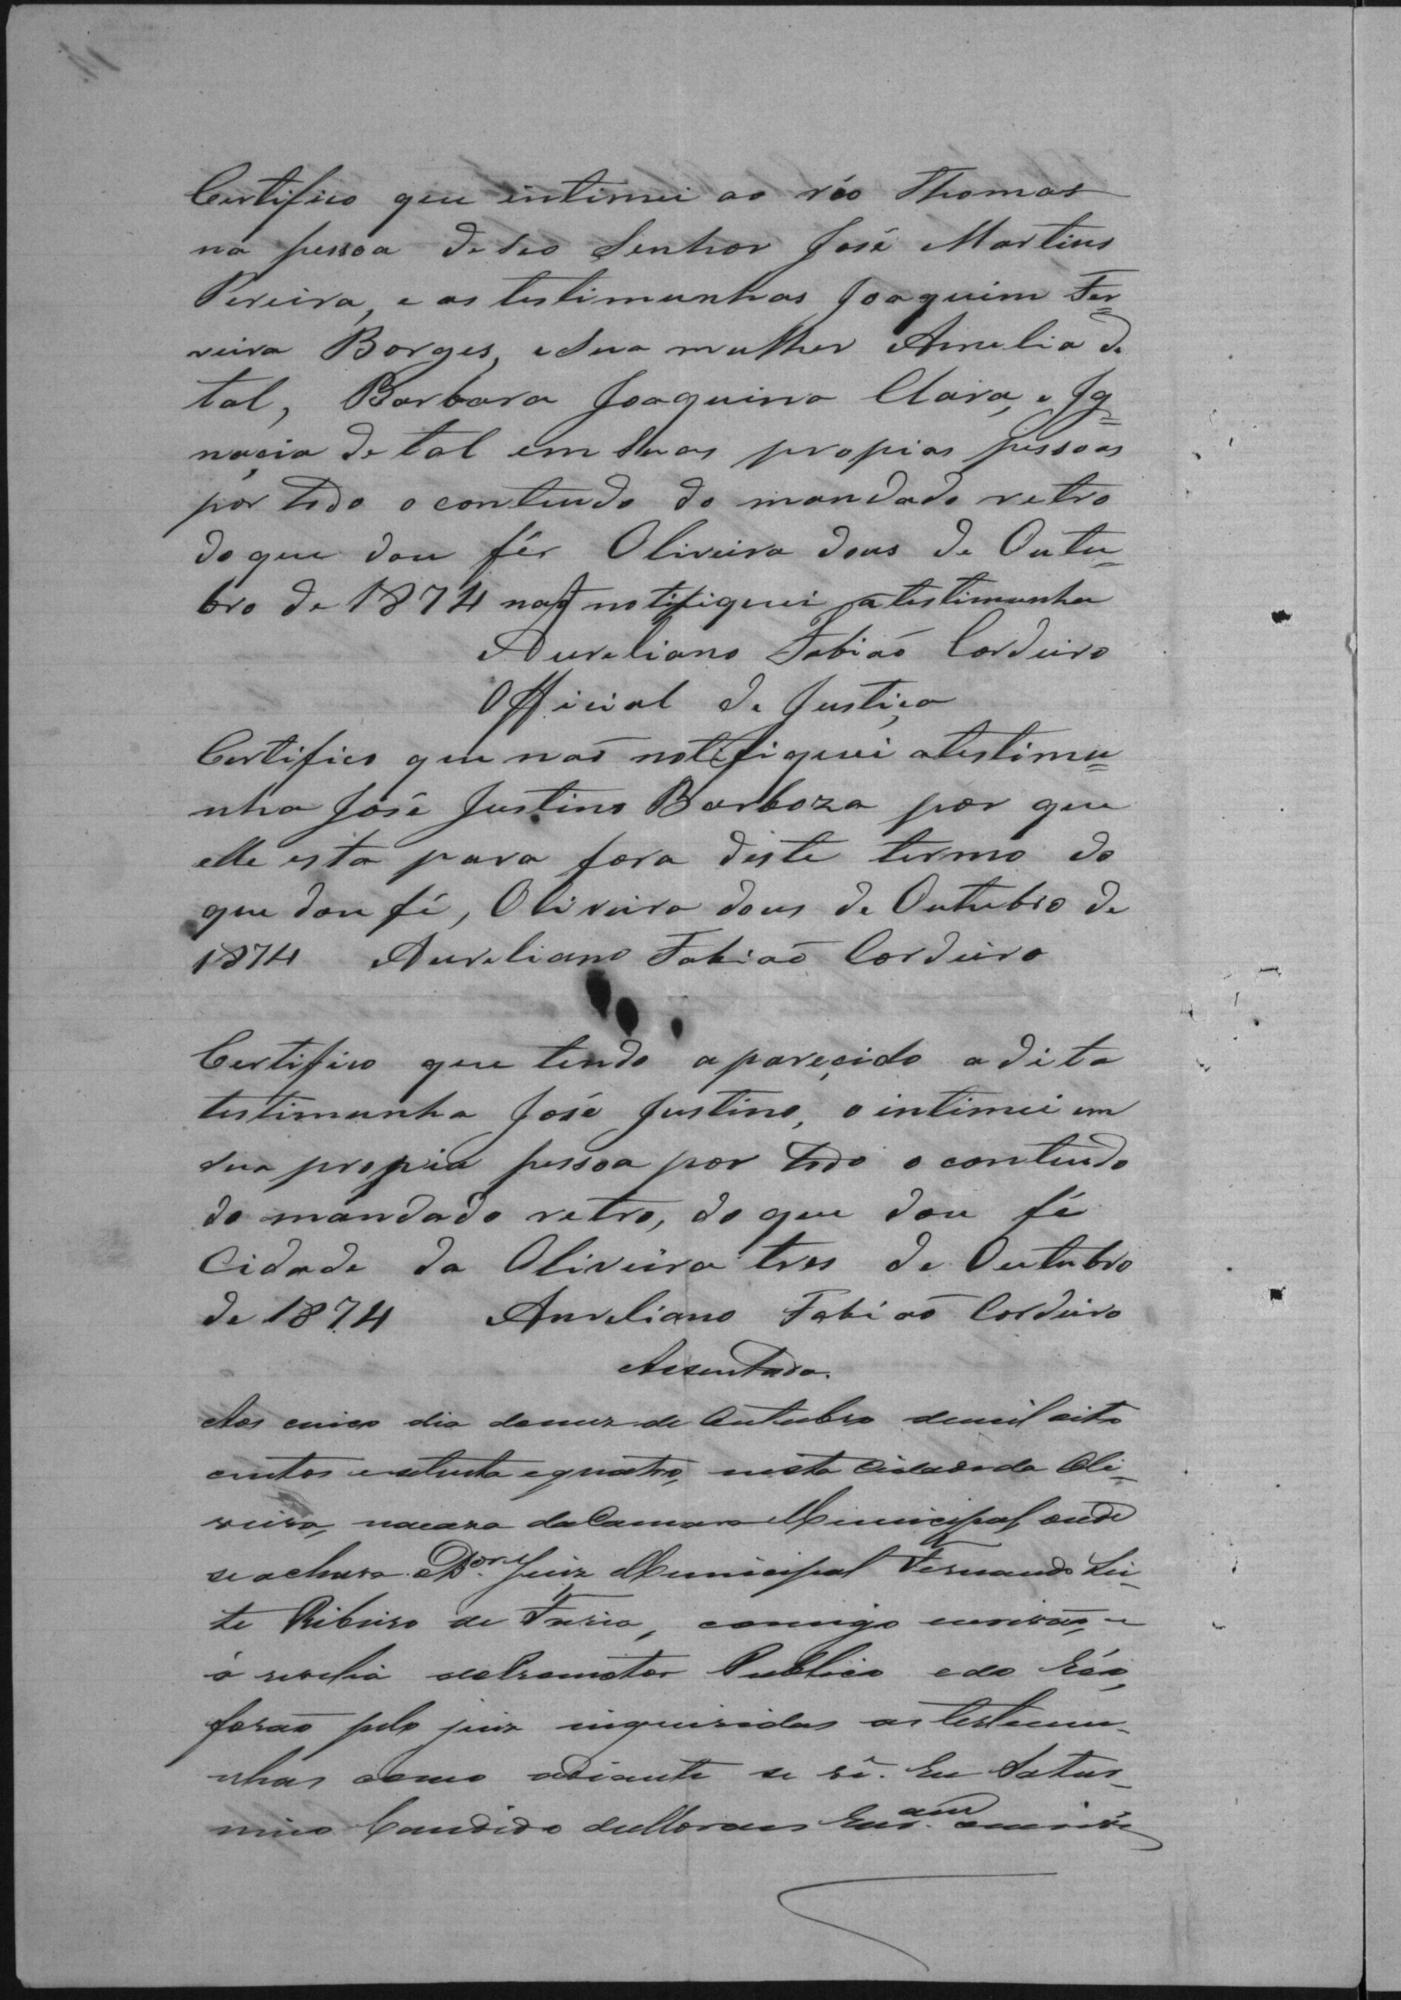 Certifico que intimei ao réo Thomas
na pessoa de seo Senhor José Martins
Pereira, e as testimunhas Joaquim Fer-
reira Borges, e sua mulher Amelia de
tal, Barbara Joaquina Clara, e Ig-
nacia de tal em suas propias pessoas
por todo o contendo do mandado retro
do que dou fér Oliveira dous de Outu-
bro de 1874 não notifiquei a testimunha
Aureliano Fabiaõ Cordeiro
Official de Justiça
Certifico que naõ notifiquei a testimu-
nha José Justino Barboza por que
elle esta para fora deste termo do
que dou fé, Oliveira dous de Outubro de
1874 Aureliano Fabiaõ Cordeiro
Certifico que tendo apareçido a dita
testimunha José Justino, o intimei em
sua propria pessoa por todo o contendo
do mandado retro, do que dou fé
Cidade da Oliveira tres de Outubro
de 1874 Aureliano Fabiaõ Cordeiro
Assentada.
Aos cinco dia do mez de Outubro de mil oito
centos e setenta e quatro, nesta Cidade da Oli-
veira, na caza da Camara Municipal, onde
se achava o Dor. Juiz Municipal Fernando Lei-
te Ribeiro de Faria, comigo escrivão, e
á revelia do Promotor Publico e do Réo,
foraõ pelo juiz inquiridas as testemu-
nhas como adiante se vê. Eu Satur-
nino Candido de Moraes